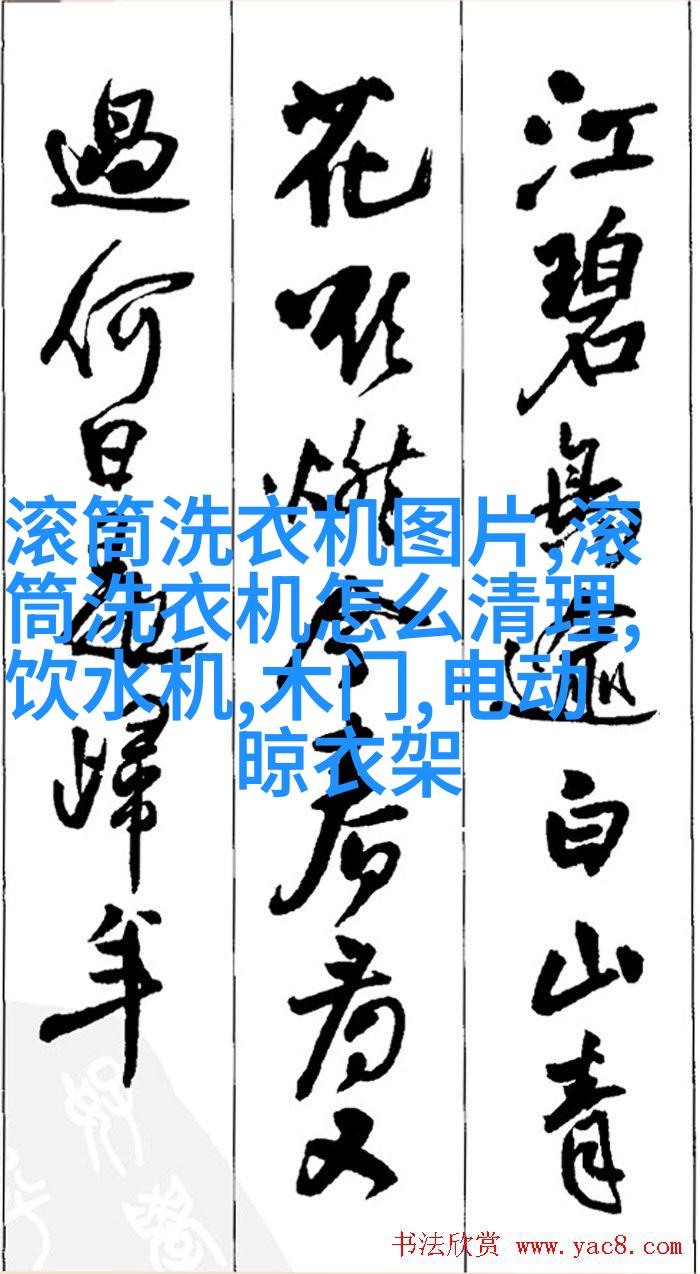 江碧鳥逾白山青
花欲燃今春看又
過何日是歸年
滚筒洗衣机图片,滚
筒洗衣机怎么清理,
饮水机,木门,电动
晾衣架
书法欣赏 www.yac8.com